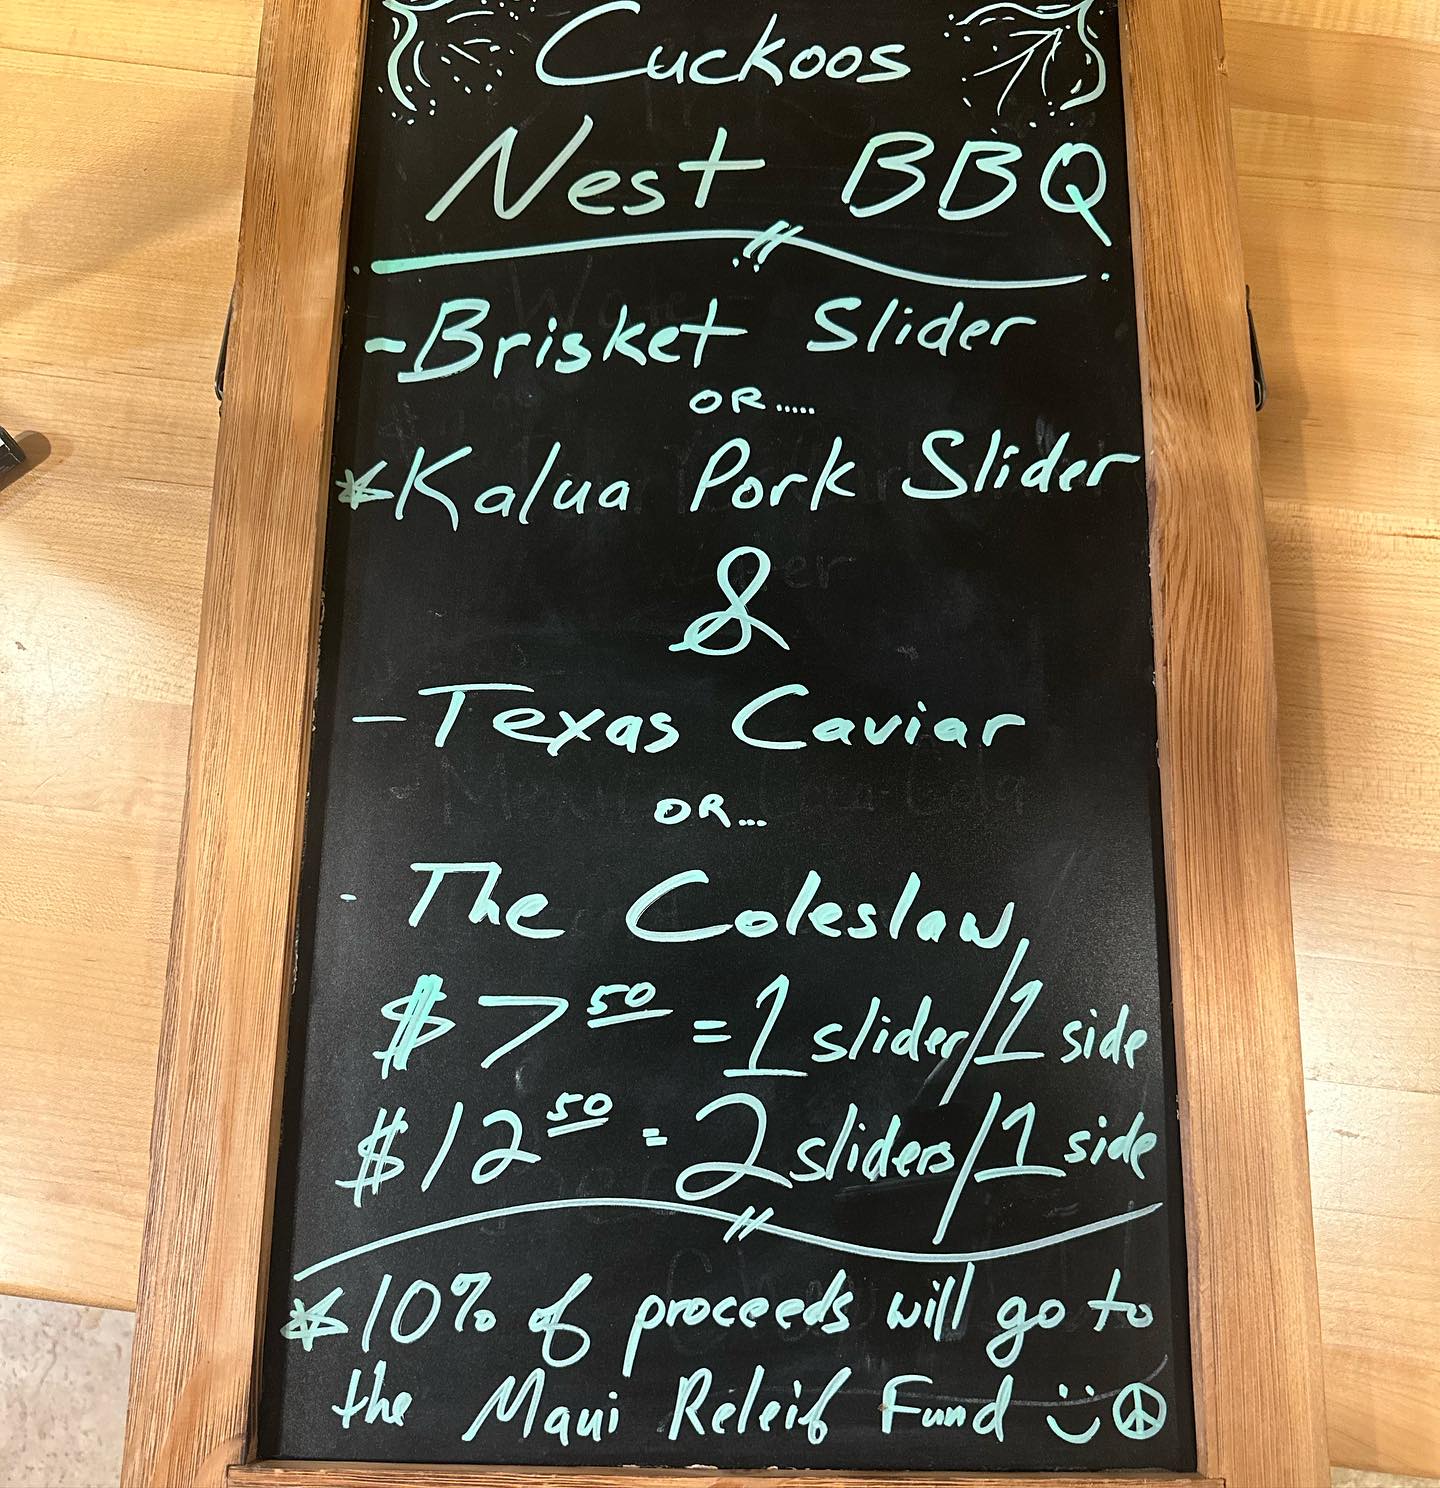 Cuckoos
Nest BBQ
- Brisket Slider
OR.....
*Kalua Pork Slider
&
- Texas Caviar
OR...
- The Coleslaw
$7.50 = 1 slider/1 side
$12.50 = 2 sliders/1 side
*10% of proceeds will go to
the Maui Releif Fund